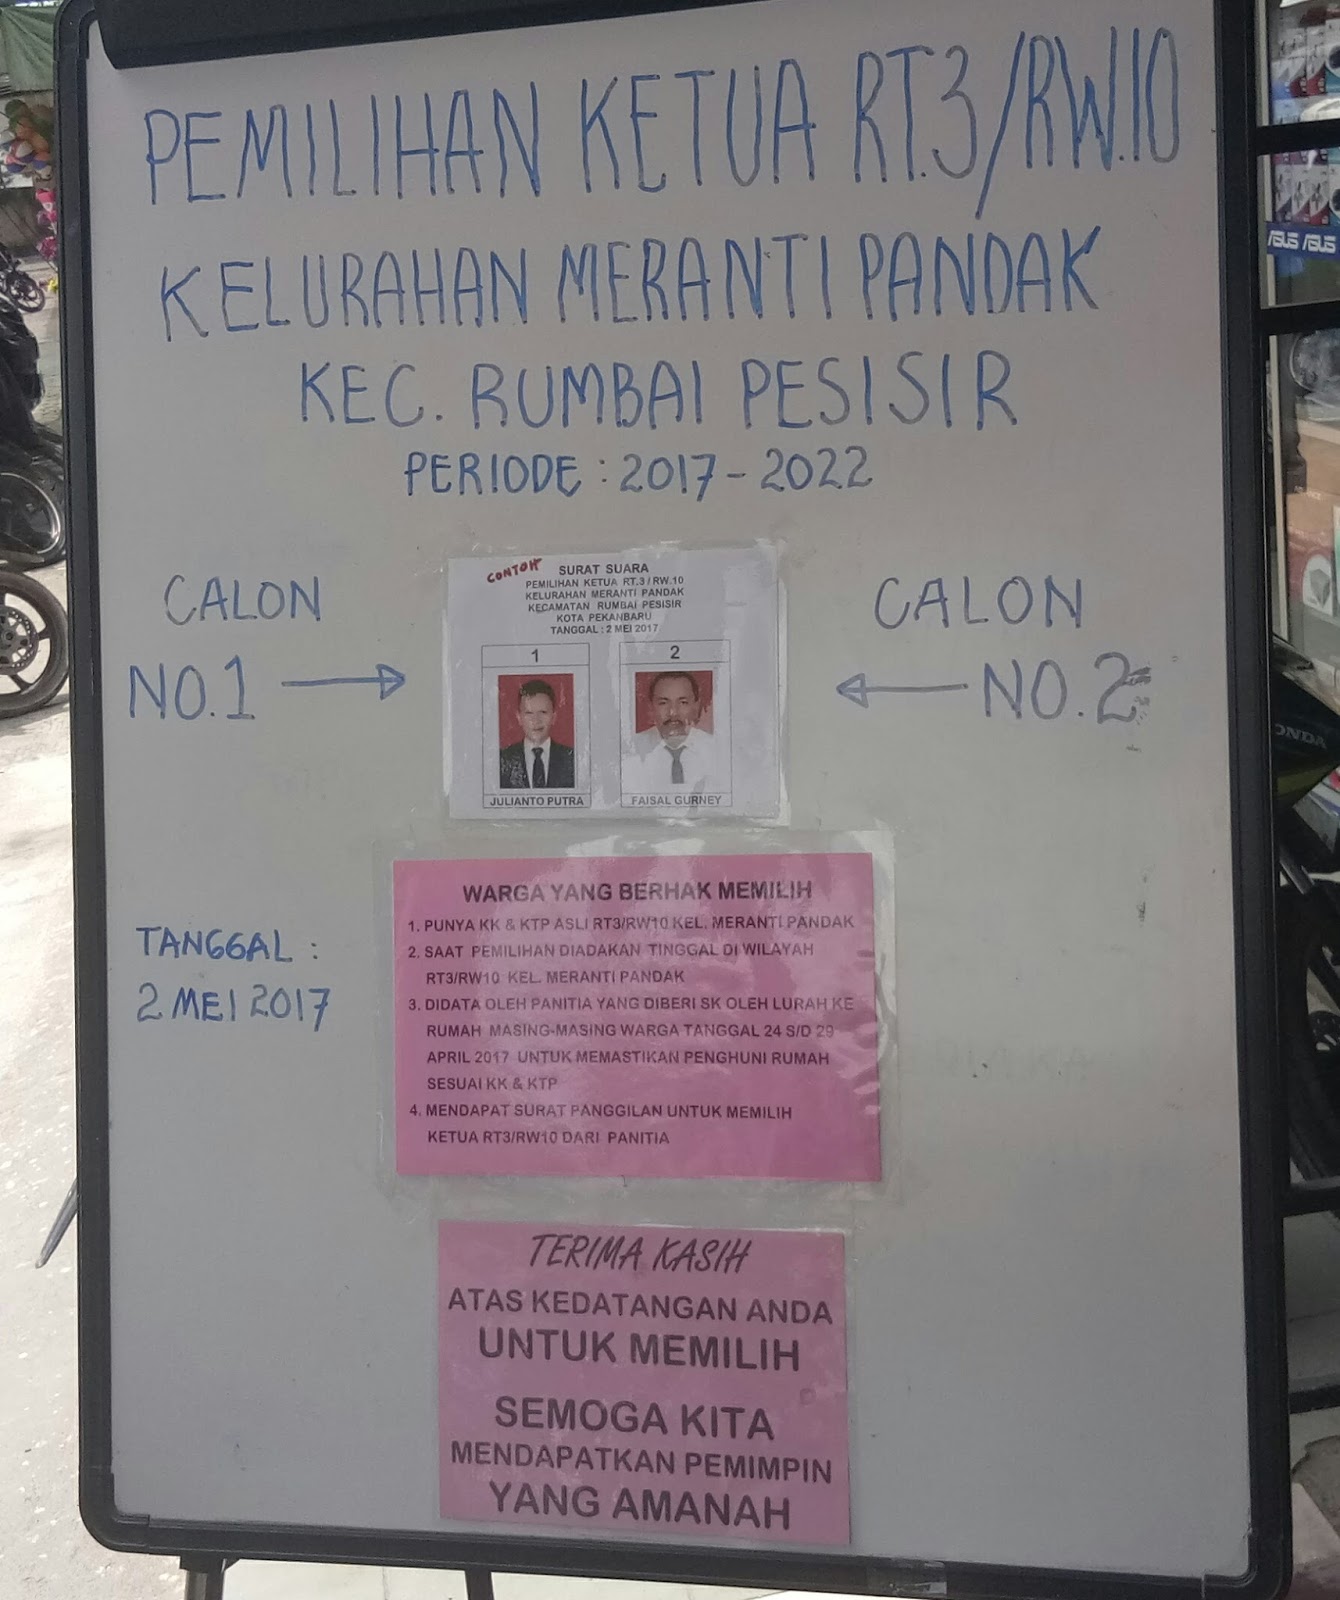 PEMILIHAN KETUA RT.3/RW.10
KELURAHAN MERANTI PANDAK
KEC. RUMBAI PESISIR
PERIODE : 2017 - 2022
CALON
NO.1
CONTOH
SURAT SUARA
PEMILIHAN KETUA RT.3 / RW.10
KELURAHAN MERANTI PANDAK
KECAMATAN RUMBAI PESISIR
KOTA PEKANBARU
TANGGAL : 2 MEI 2017
1
2
JULIANTO PUTRA
FAISAL GURNEY
CALON
NO.2
TANGGAL :
2 MEI 2017
WARGA YANG BERHAK MEMILIH
1. PUNYA KK & KTP ASLI RT3/RW10 KEL. MERANTI PANDAK
2. SAAT PEMILIHAN DIADAKAN TINGGAL DI WILAYAH
RT3/RW10 KEL. MERANTI PANDAK
3. DIDATA OLEH PANITIA YANG DIBERI SK OLEH LURAH KE
RUMAH MASING-MASING WARGA TANGGAL 24 S/D 29
APRIL 2017 UNTUK MEMASTIKAN PENGHUNI RUMAH
SESUAI KK & KTP
4. MENDAPAT SURAT PANGGILAN UNTUK MEMILIH
KETUA RT3/RW10 DARI PANITIA
TERIMA KASIH
ATAS KEDATANGAN ANDA
UNTUK MEMILIH
SEMOGA KITA
MENDAPATKAN PEMIMPIN
YANG AMANAH
ASUS ASUS